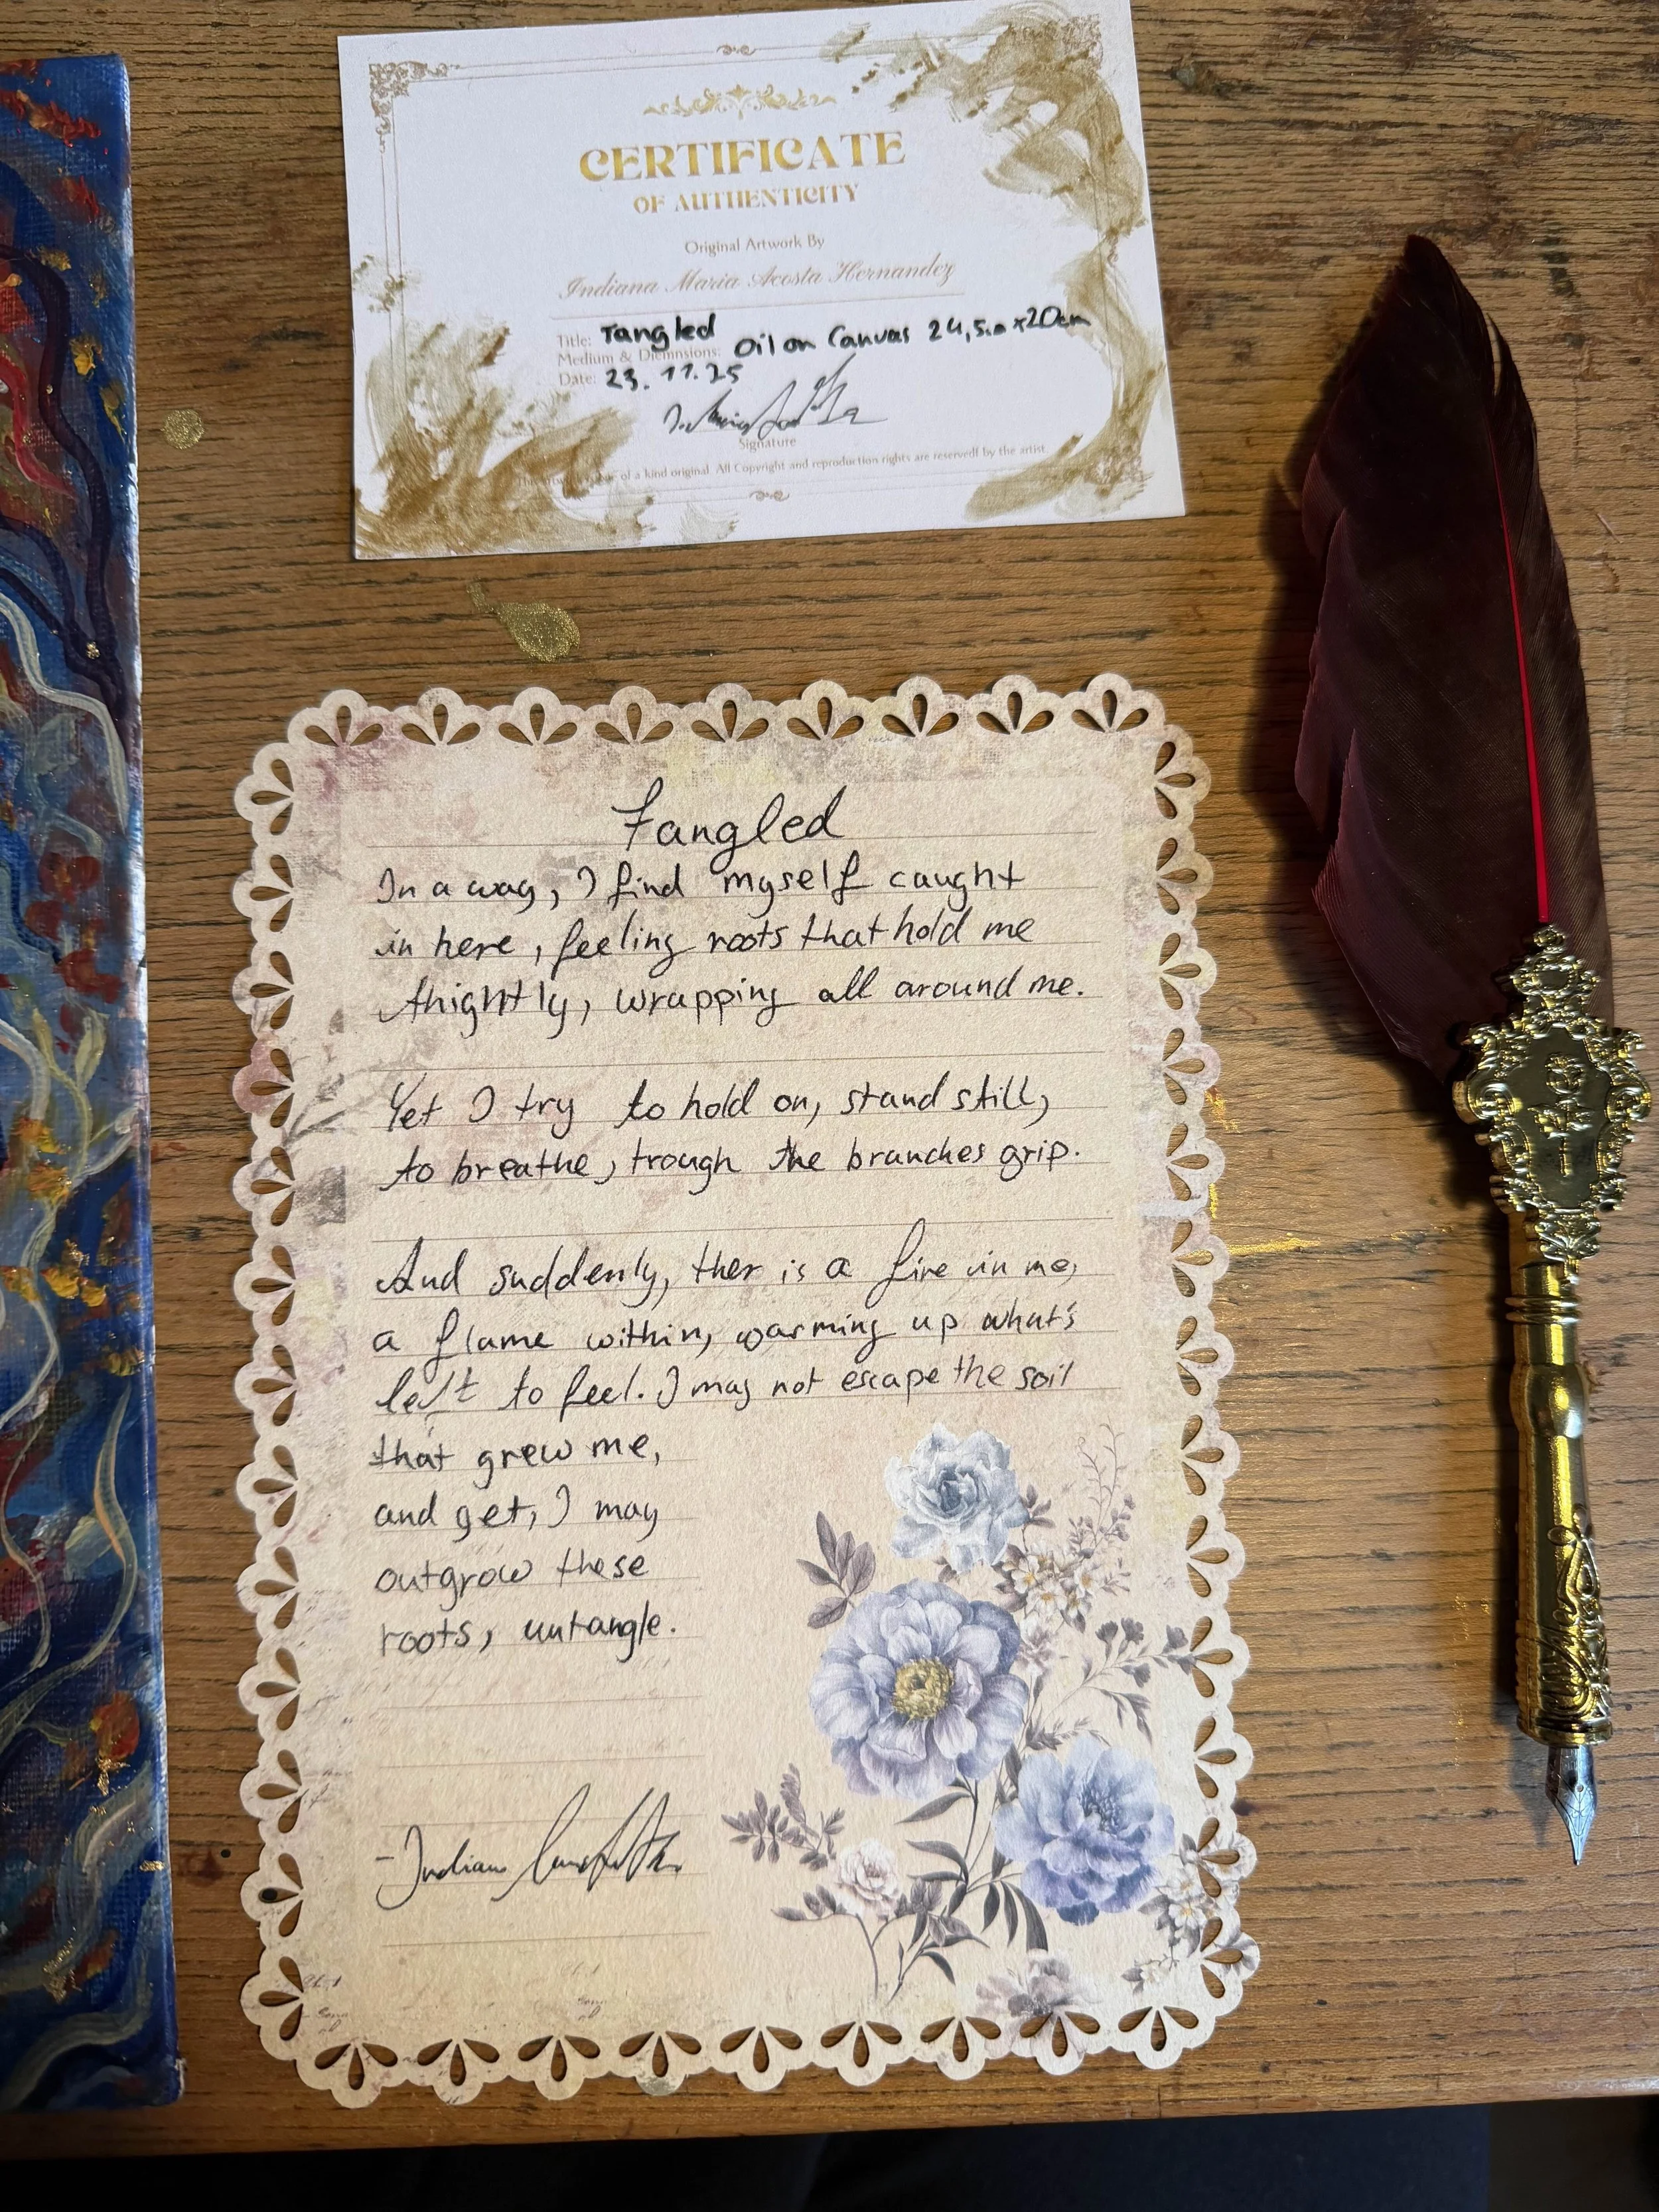 CERTIFICATE
OF AUTHENTICITY
Original Artwork By
Indiana Maria Acosta Hernandez
Title: Tangled
Medium & Diemnsions: Oil on Canvas 24,5cm x 20cm
Date: 23.11.25
Signature
of a kind original. All Copyright and reproduction rights are reservedf by the artist.
Tangled
In a way, I find myself caught
in here, feeling roots that hold me
thightly, wrapping all around me.
Yet I try to hold on, stand still,
to breathe, trough the branches grip.
And suddenly, ther is a fire in me,
a flame within, warming up what's
left to feel. I may not escape the soil
that grew me,
and yet, I may
outgrow these
roots, untangle.
-Indiana